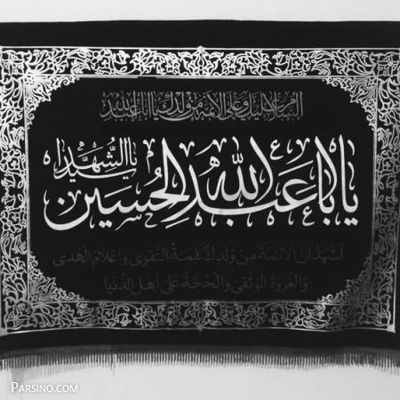 السلام عليك وعلى الأئمة من ولدك يا أبا عبد الله
يا أبا عبد الله الحسين يا الشهيد
اشهد ان الائمة من ولدك كلمة التقوى واعلام الهدى
والعروة الوثقى والحجة على اهل الدنيا
PARSINO.COM